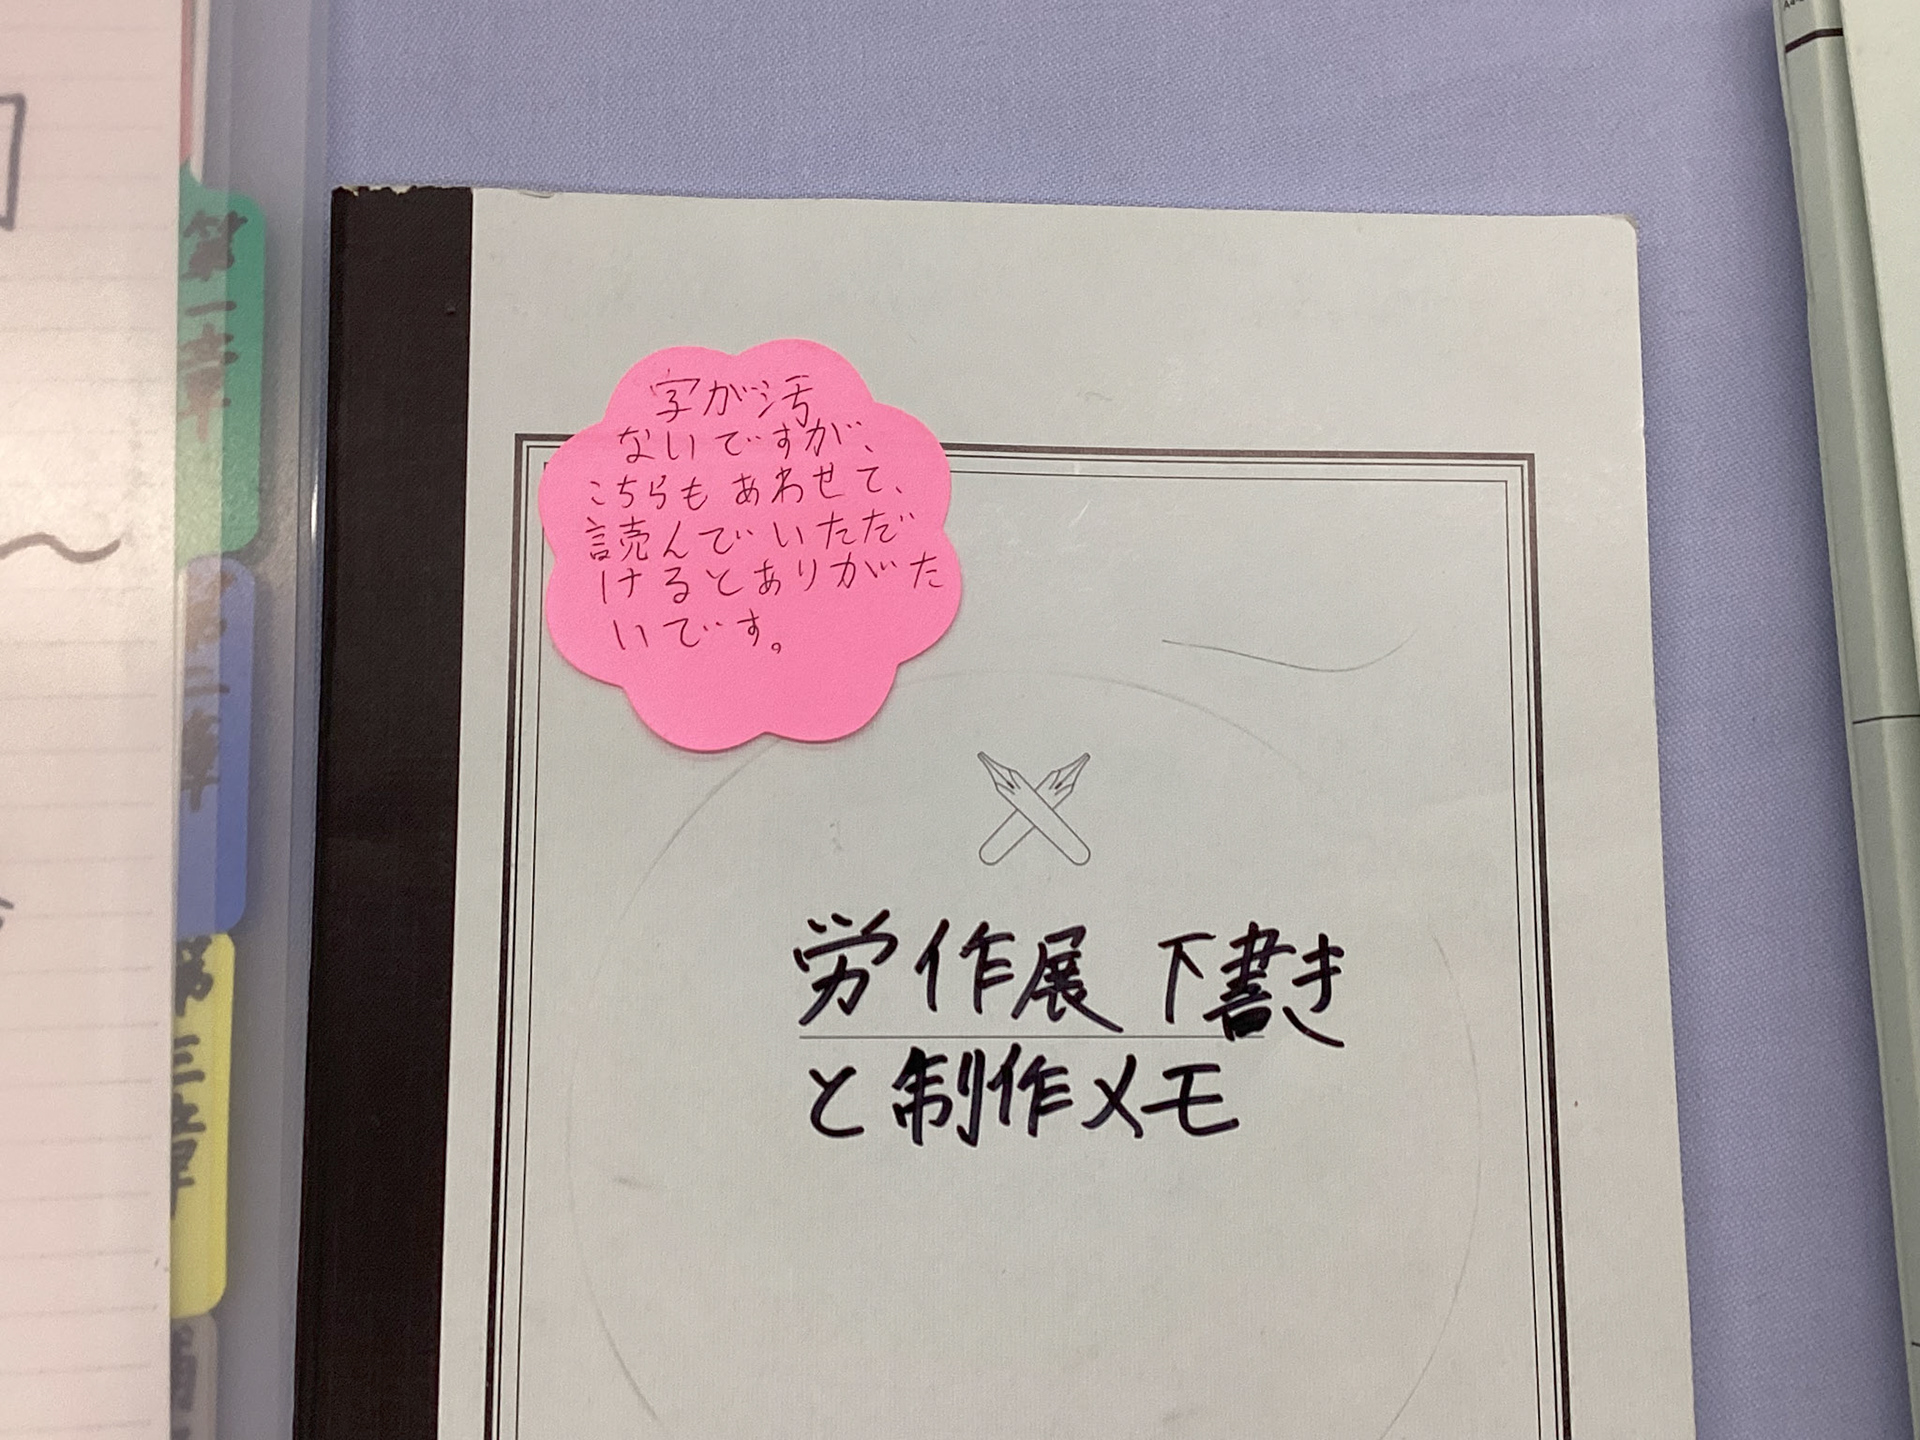 字が汚
ないですが、
こちらも あわせて、
読んでいただ
けるとありがた
いです。
労作展 下書き
と制作メモ
第一章
第二章
第三章